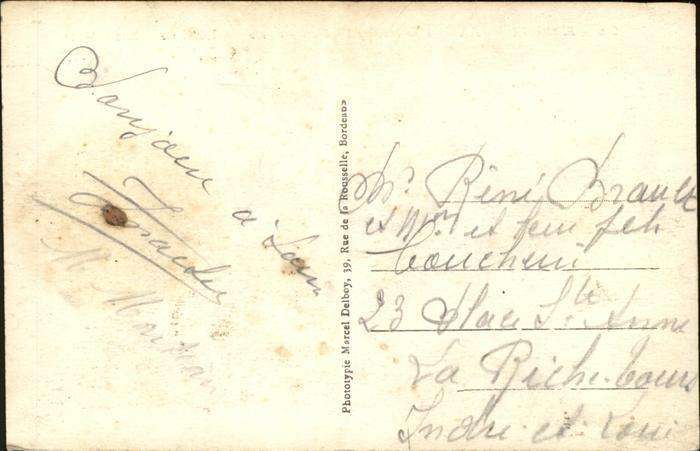 Bonjour à tous
Phototypie Marcel Delboy, 39, Rue de la Rousselle, Bordeaux
Mr. Réni Brault
et Mme et leur fils
23 Place Ste Anne
La Riche-Tours
Indre et Loire